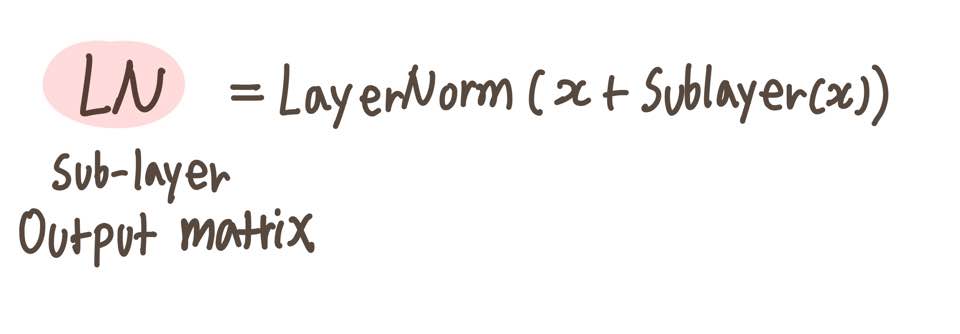 LN = LayerNorm(x + Sublayer(x))
Sub-layer
Output matrix